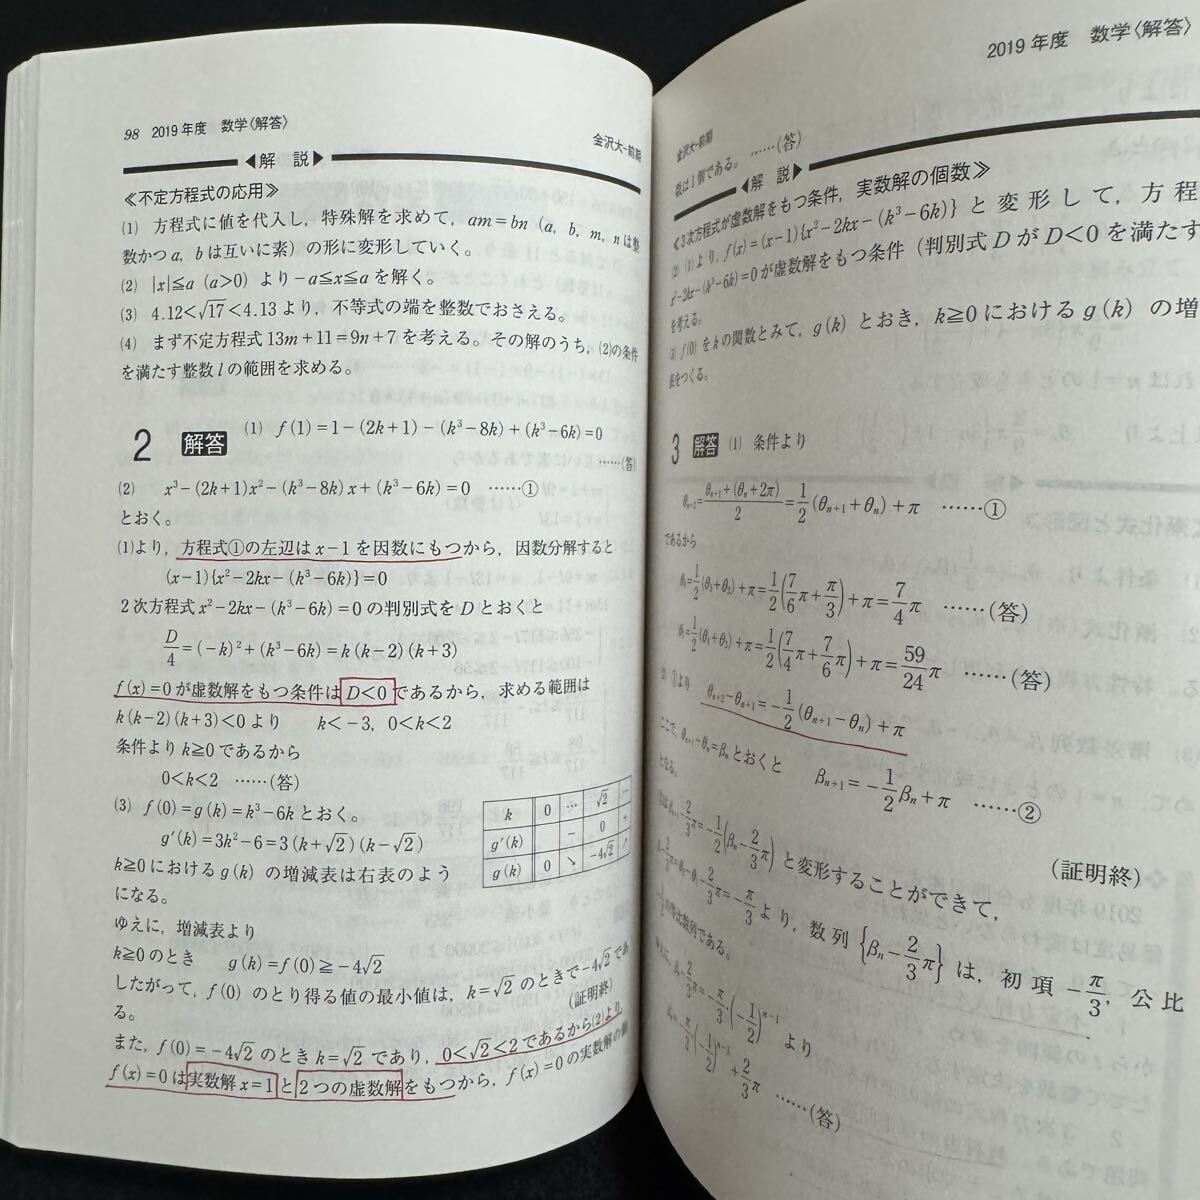 98 2019年度 数学〈解答〉 金沢大-前期
◀解 説▶
≪不定方程式の応用≫
(1) 方程式に値を代入し，特殊解を求めて，am=bn (a, b, m, n は整
数かつ a, b は互いに素) の形に変形していく。
(2) |x|≦a (a>0) より −a≦x≦a を解く。
(3) 4.12<√17<4.13 より，不等式の端を整数でおさえる。
(4) まず不定方程式 13m+11=9n+7 を考える。その解のうち，(2)の条件
を満たす整数 l の範囲を求める。
2 解答 (1) f(1)=1−(2k+1)−(k³−8k)+(k³−6k)=0
……(答)
(2) x³−(2k+1)x²−(k³−8k)x+(k³−6k)=0 ……①
とおく。
(1)より，方程式①の左辺は x−1 を因数にもつから，因数分解すると
(x−1){x²−2kx−(k³−6k)}=0
2次方程式 x²−2kx−(k³−6k)=0 の判別式を D とおくと
D/4=(−k)²+(k³−6k)=k(k−2)(k+3)
f(x)=0 が虚数解をもつ条件は D<0 であるから，求める範囲は
k(k−2)(k+3)<0 より k<−3, 0<k<2
条件より k≧0 であるから
0<k<2 ……(答)
(3) f(0)=g(k)=k³−6k とおく。
g'(k)=3k²−6=3(k+√2)(k−√2)
k≧0 における g(k) の増減表は右表のよう
になる。
k 0 … √2 …
g'(k) − 0 +
g(k) 0 ↘ −4√2 ↗
ゆえに，増減表より
k≧0 のとき g(k)=f(0)≧−4√2
したがって，f(0) のとり得る値の最小値は，k=√2 のときで −4√2 であ
る。 (証明終)
また，f(0)=−4√2 のとき k=√2 であり，0<√2<2 であるから(2)より
f(x)=0 は実数解 x=1 と 2つの虚数解をもつから，f(x)=0 の実数解の個
2019年度 数学〈解答〉
金沢大-前期
数は1個である。 ……(答)
◀解 説▶
≪3次方程式が虚数解をもつ条件，実数解の個数≫
(2) (1)より，f(x)=(x−1){x²−2kx−(k³−6k)} と変形して，方程
x²−2kx−(k³−6k)=0 が虚数解をもつ条件 (判別式 D が D<0 を満たす
を考える。
(3) f(0) を k の関数とみて，g(k) とおき，k≧0 における g(k) の増
表をつくる。
3 解答 (1) 条件より
θₙ₊₂=(θₙ₊₁+(θₙ+2π))/2=1/2(θₙ₊₁+θₙ)+π ……①
であるから
θ₄=1/2(θ₃+θ₂)+π=1/2(7/6π+π/3)+π=7/4π ……(答)
θ₅=1/2(θ₄+θ₃)+π=1/2(7/4π+7/6π)+π=59/24π ……(答)
(2) ①より θₙ₊₂−θₙ₊₁=−1/2(θₙ₊₁−θₙ)+π
ここで，θₙ₊₁−θₙ=βₙ とおくと βₙ₊₁=−1/2βₙ+π ……②
となる。 (証明終)
βₙ₊₁−2/3π=−1/2(βₙ−2/3π) と変形することができて，
より，数列{βₙ−2/3π}は，初項 −π/3, 公比
の等比数列である。
βₙ−2/3π=−π/3·(−1/2)ⁿ⁻¹ より
βₙ=−π/3·(−1/2)ⁿ⁻¹+2/3π ……(答)